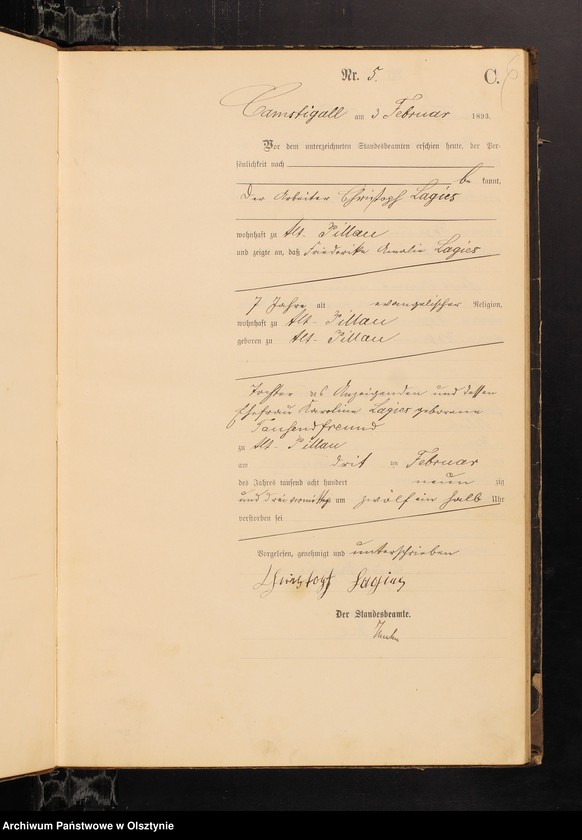 Nr. 5. C.
Camstigall am 3 Februar 1893.
Vor dem unterzeichneten Standesbeamten erschien heute, der Per-
sönlichkeit nach
be kannt,
Der Arbeiter Christoph Lagies
wohnhaft zu Alt-Pillau
und zeigte an, daß Friederike Amalie Lagies
7 Jahre alt evangelischer Religion,
wohnhaft zu Alt-Pillau
geboren zu Alt-Pillau
Tochter des Anzeigenden und dessen
Ehefrau Karoline Lagies geborene
Tausendfreund
zu Alt-Pillau
am drit en Februar
des Jahres tausend acht hundert neun zig
und drei vormittags um zwölf ein halb Uhr
verstorben sei
Vorgelesen, genehmigt und unterschrieben
Christoph Lagies
Der Standesbeamte.
Archiwum Państwowe w Olsztynie